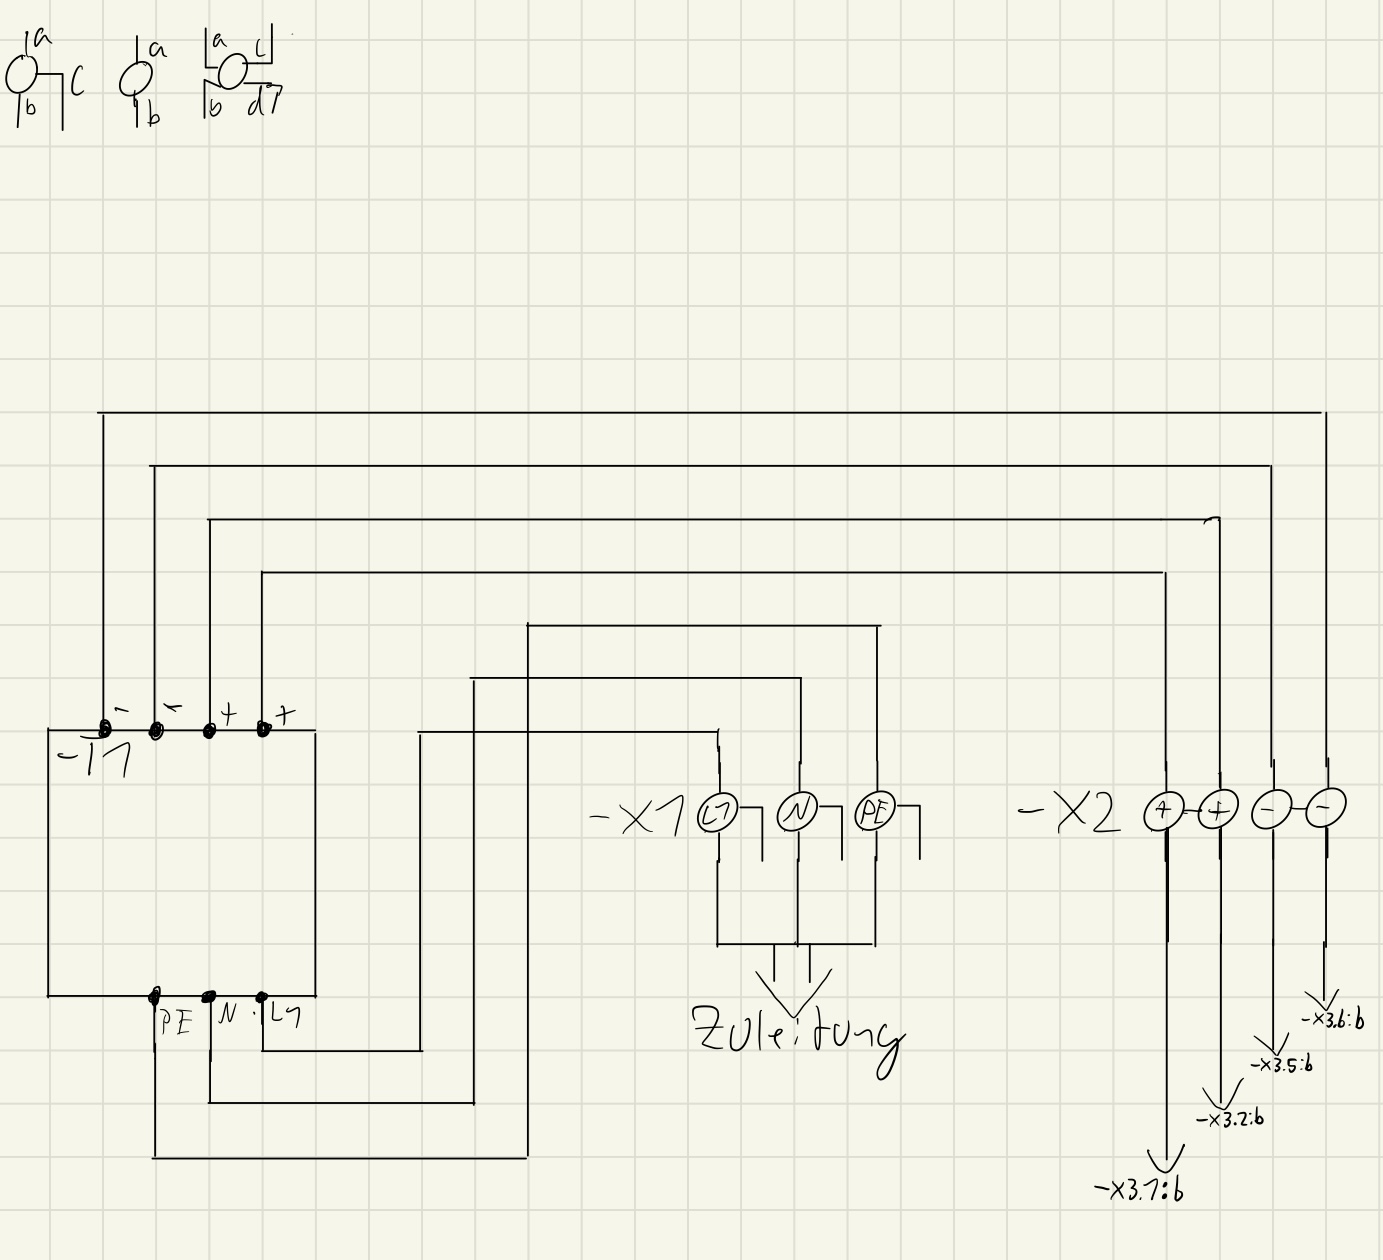 a
b
c
a
b
a
c
b
d
- - + +
-T1
PE N L1
-X1 L1 N PE
Zuleitung
-X2 + + - -
-X3.6:b
-X3.5:b
-X3.2:b
-X3.1:b